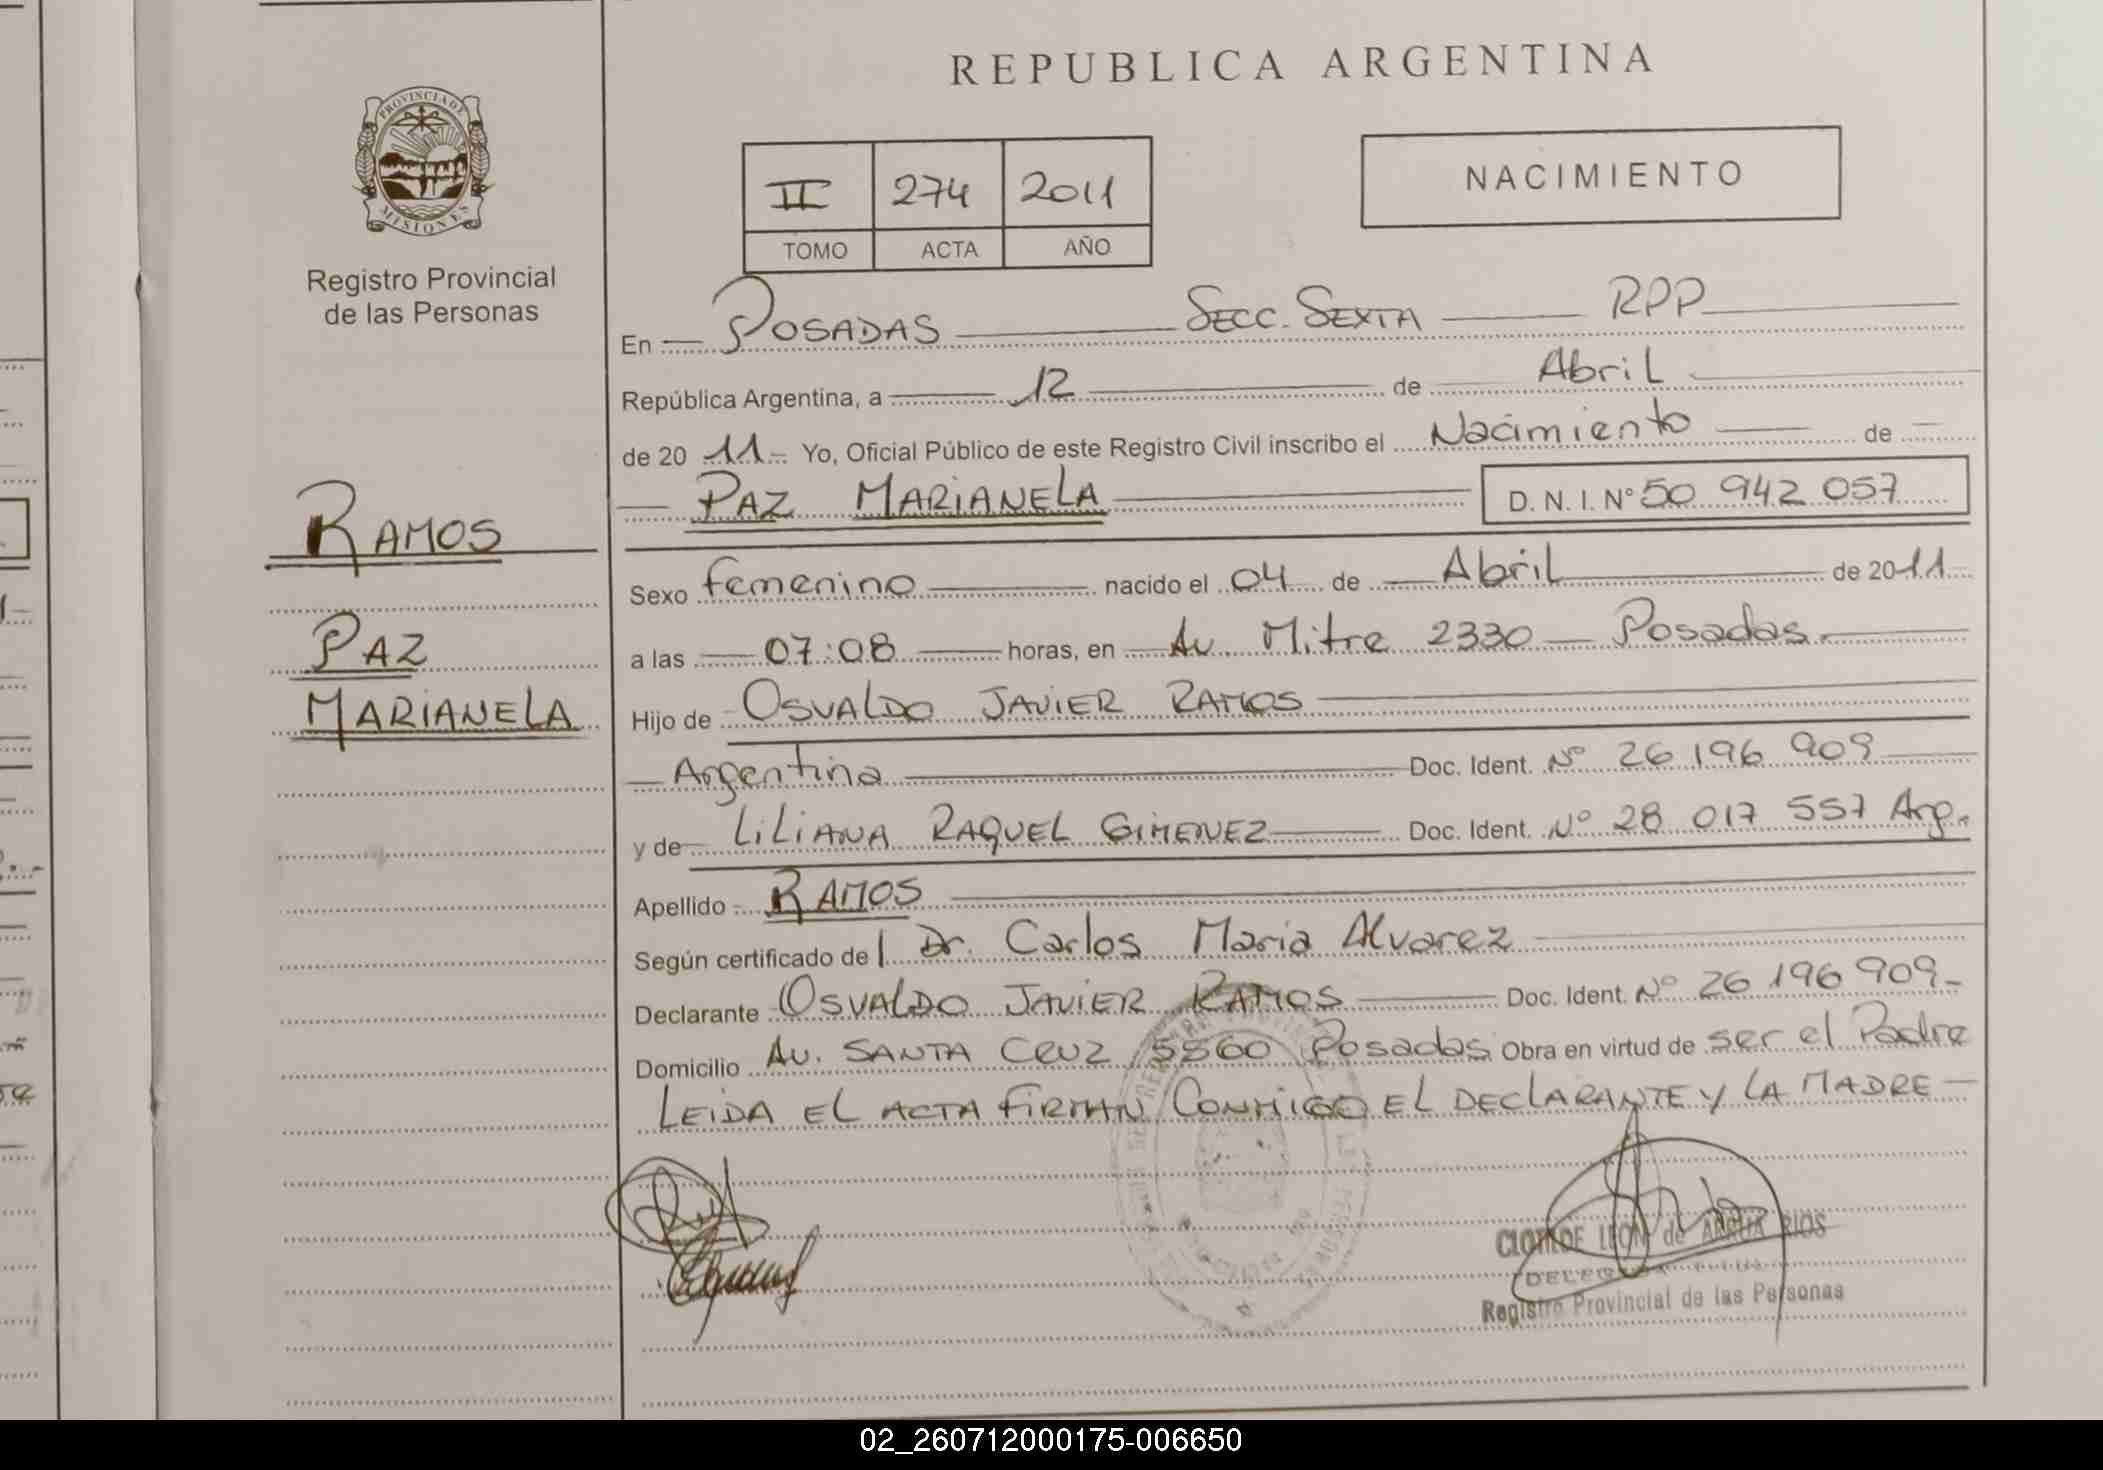 REPUBLICA ARGENTINA
PROVINCIA DE
MISIONES
Registro Provincial
de las Personas
II 274 2011
TOMO ACTA AÑO
NACIMIENTO
En POSADAS SECC. SEXTA RPP
República Argentina, a 12 de Abril
de 20 11 Yo, Oficial Público de este Registro Civil inscribo el Nacimiento de
PAZ MARIANELA D. N. I. Nº 50 942 057
RAMOS
PAZ
MARIANELA
Sexo femenino nacido el 04 de Abril de 2011
a las 07:08 horas, en Av Mitre 2330 Posadas
Hijo de OSVALDO JAVIER RAMOS
Argentina Doc. Ident. Nº 26 196 909
y de LILIANA RAQUEL GIMENEZ Doc. Ident. Nº 28 017 557 Arg.
Apellido RAMOS
Según certificado del Dr. Carlos Maria Alvarez
Declarante OSVALDO JAVIER RAMOS Doc. Ident. Nº 26 196 909
Domicilio AV. SANTA CRUZ 5560 Posadas Obra en virtud de ser el Padre
LEIDA EL ACTA FIRMAN CONMIGO EL DECLARANTE Y LA MADRE
LEON de RIOS
Registro Provincial de las Personas
02_260712000175-006650